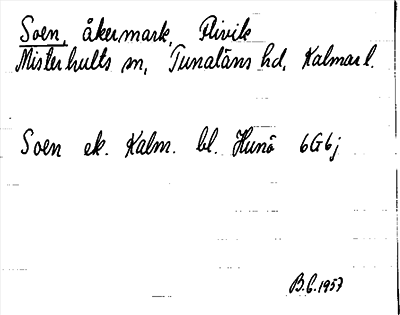 Soen, åkermark, Flivik
Misterhults sn, Tunaläns hd, Kalmar l.
Soen ek. Kalm. bl. Hunö 6G6j
B.C. 1957